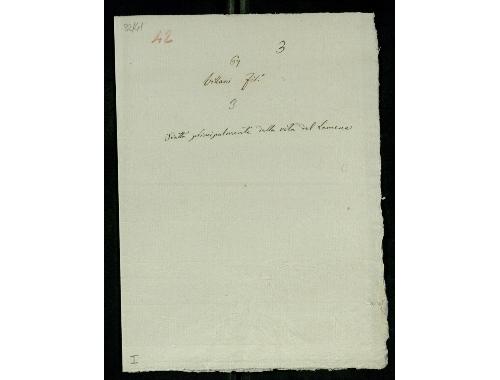 42
3
64
Villani Fil.o
3
Tratta principalmente della vita del Lamena
I